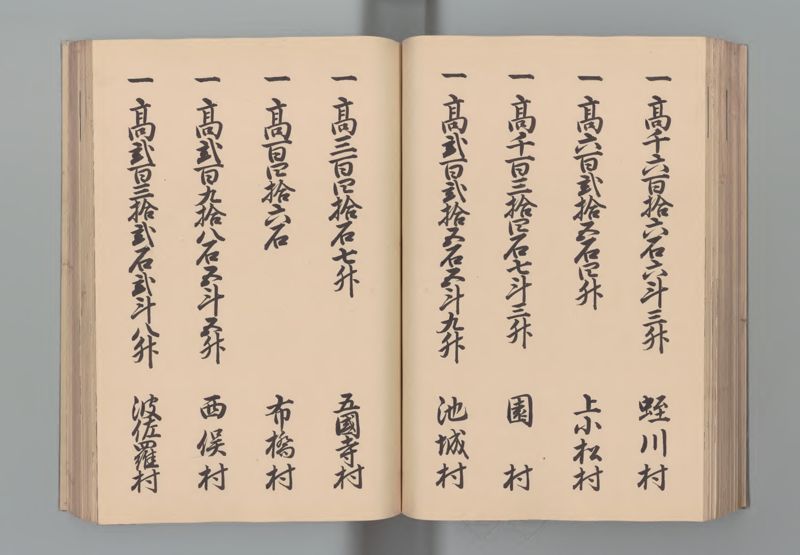 一 高千六百拾六石六斗三升 蛭川村
一 高六百弐拾五石四升 上小松村
一 高千百三拾四石七斗三升 園村
一 高弐百弐拾五石五斗九升 池城村
一 高三百四拾石七升 五國寺村
一 高百四拾六石 布橋村
一 高弐百九拾八石五斗五升 西俣村
一 高弐百三拾弐石弐斗八升 波佐羅村